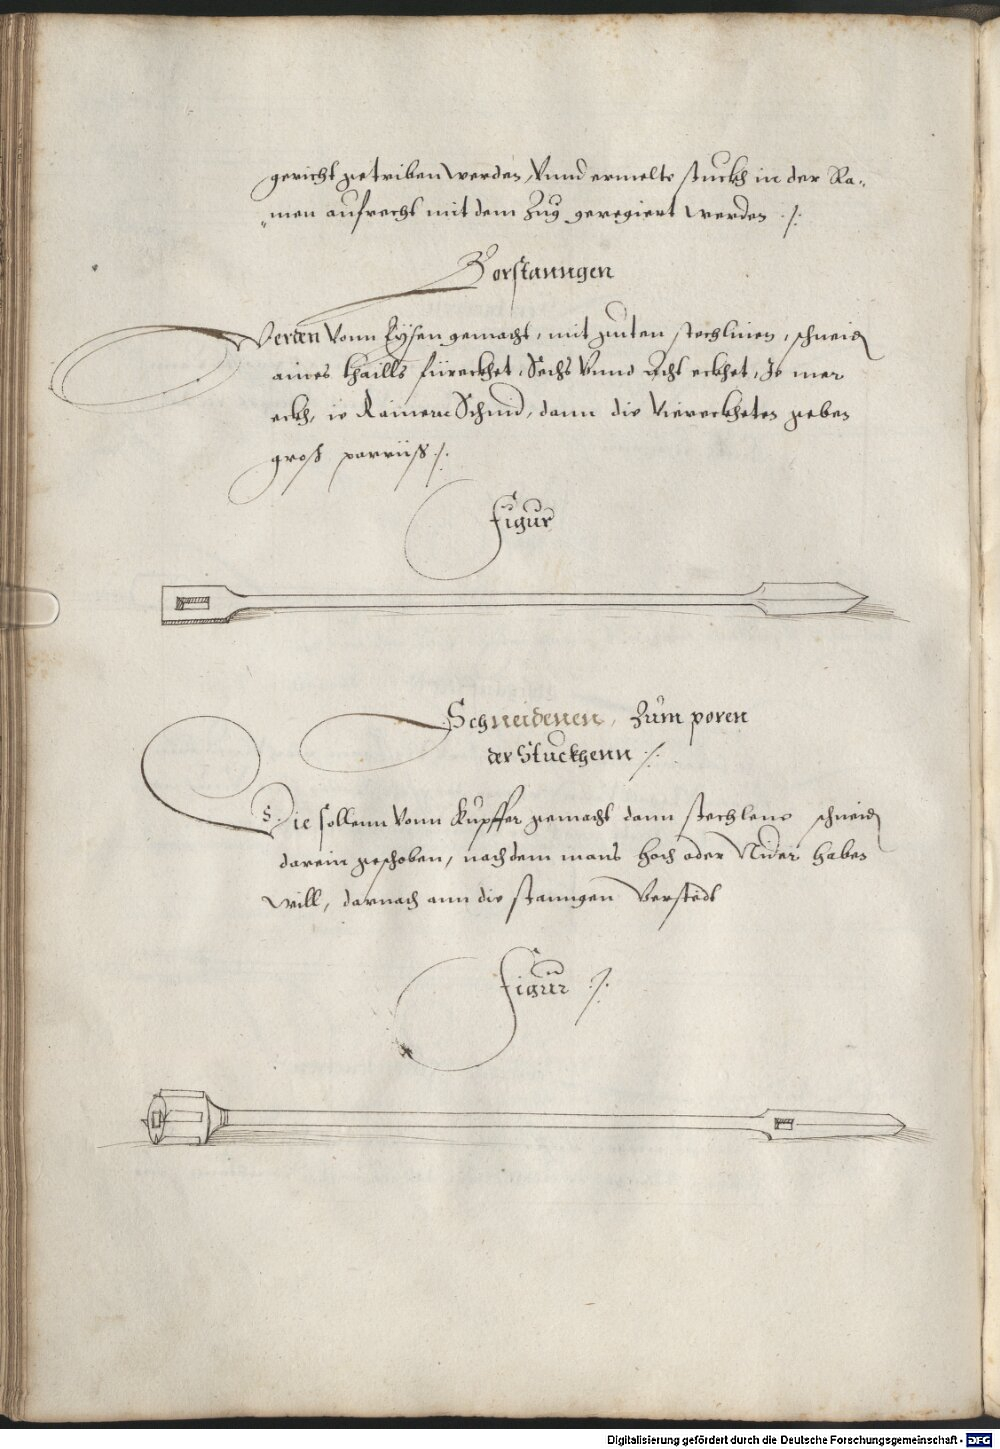 gericht getriben werden, Vnnd ermelte stuckh in der Ra-
men aufrecht mit dem Zug geregiert werden ./.
Porstanngen
Werden Vonn Eÿsen gemacht, mit guten stechlinen, schneid
aines thaills fiireckhet, Sechs Vnnd Acht eckhet, Je mer
eckh, ie Rainern Schnid, dann die Viereckheten geben
groß ./.
Figur
Schneidenen, Zum poren
der Stuckhenn ./.
Die sollenn Vonn Kupffer gemacht dann stechlene schneid
darein geschoben, nach dem mans hoch oder Nider haben
will, darnach ann die stanngen Versteckt
Figur ./.
Digitalisierung gefördert durch die Deutsche Forschungsgemeinschaft - DFG